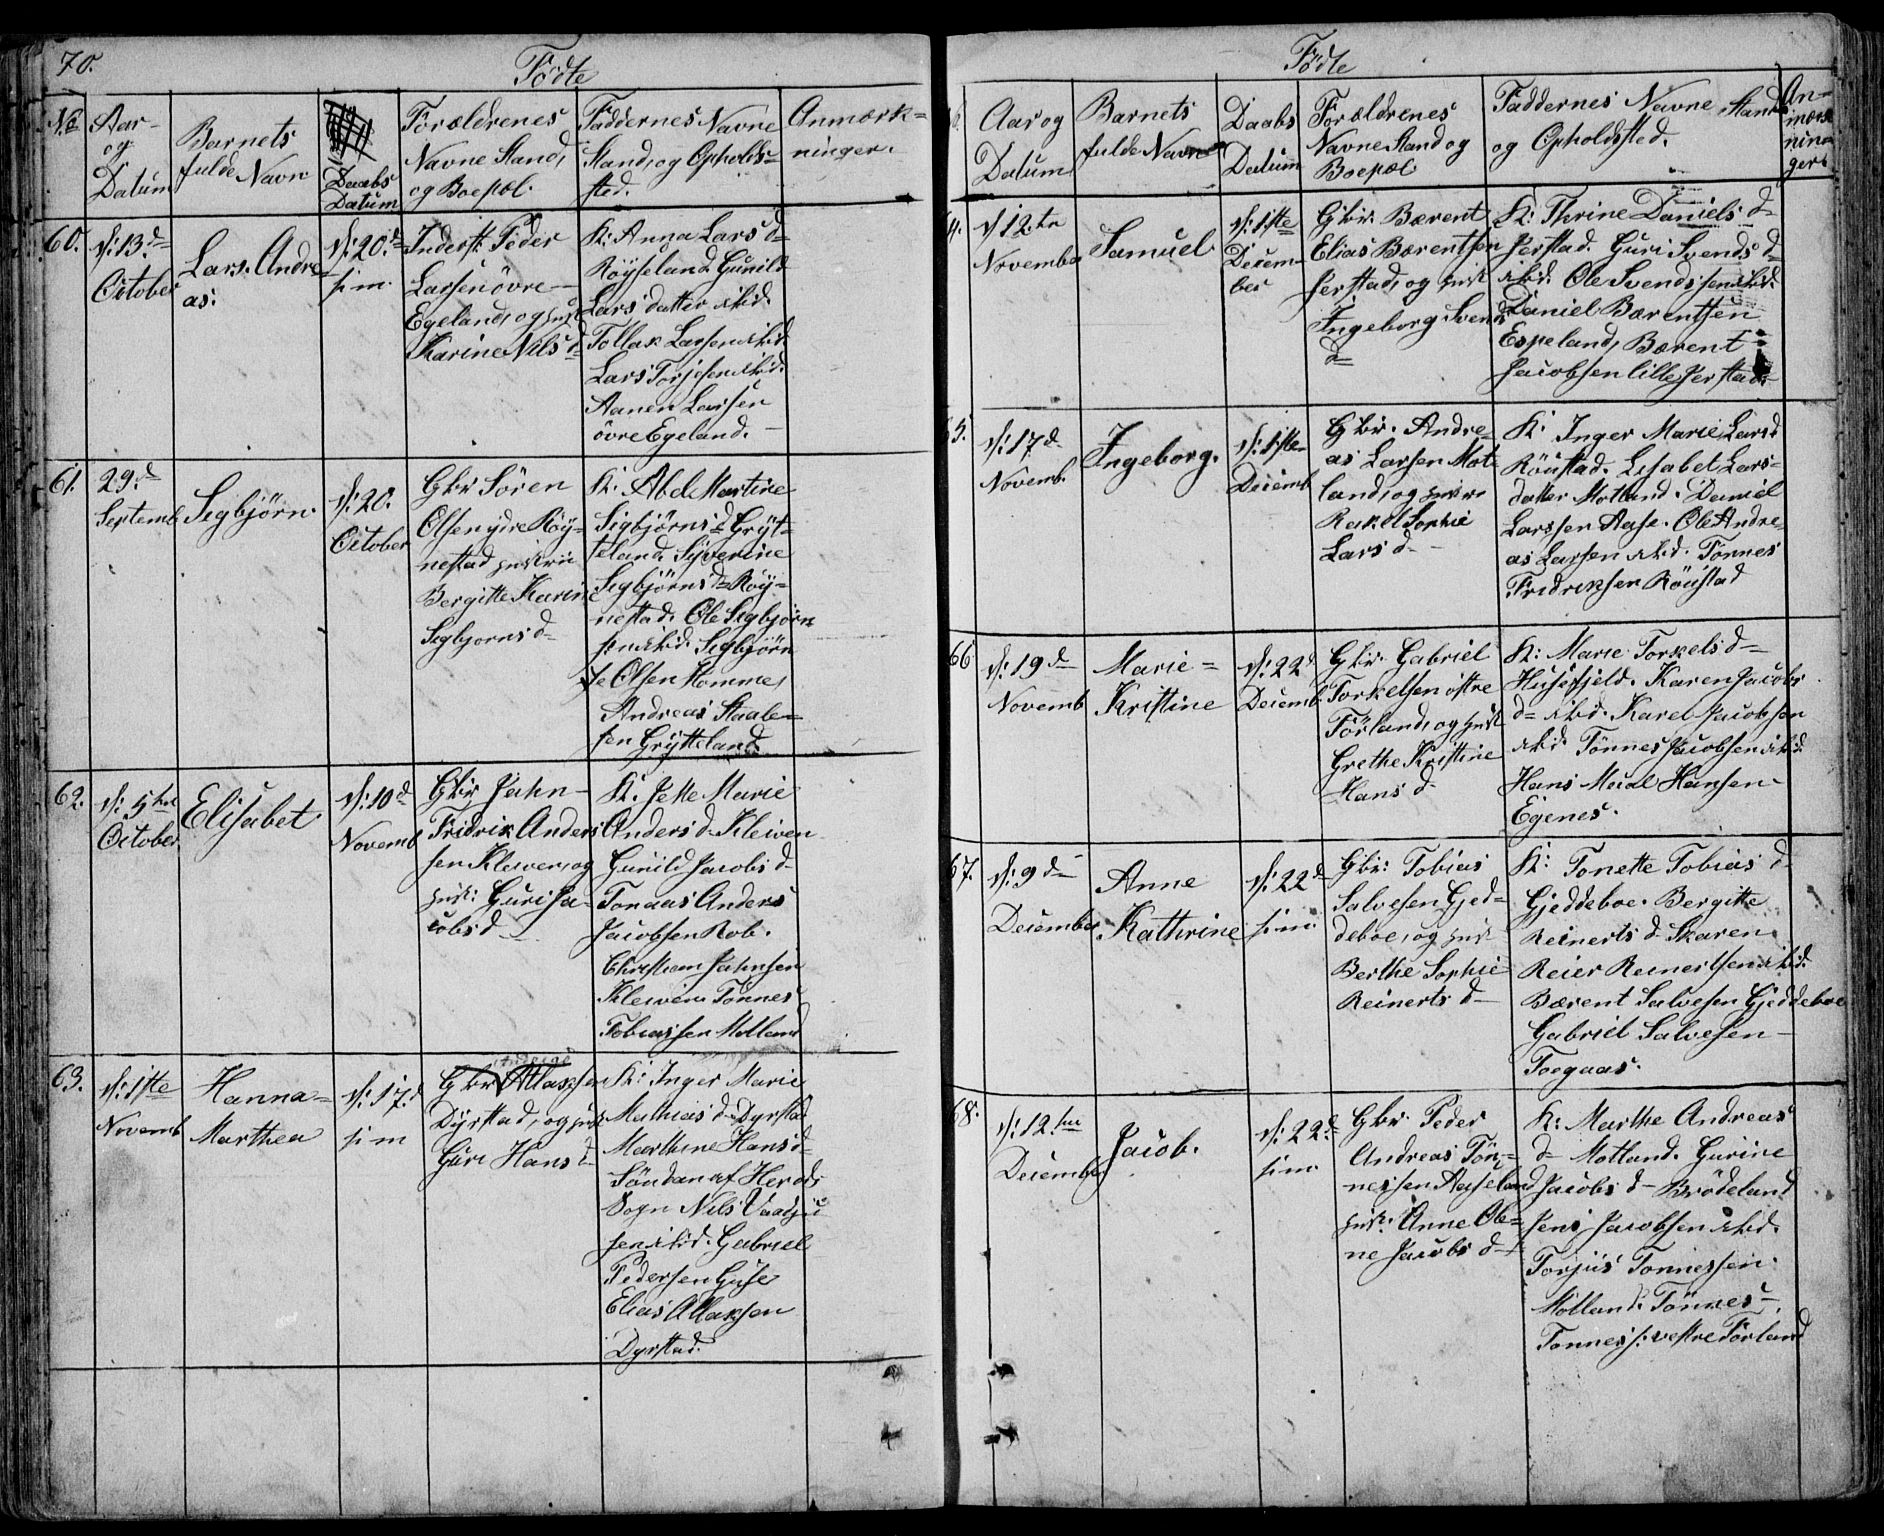 70.
Födte
No
Aar-
og
Datum
Barnets
fulde Navn
Daabs
Datum
Forældrenes
Navne Stand,
og Boepæl.
Faddernes Navne
Stand, og Opholds-
sted.
Anmærk-
ninger.
60.
d: 13d
October
Lars. Andre
as.
d: 20.d
s: m.
Inderst: Peder
Larsen övre
Egeland, og hust
Karine Nils d
K: Anna Lars d
Röyseland. Gunild
Lars datter ibid.
Tollak Larsen ibid
Lars Torjesen ibid.
Aanen Larsen
övre Egeland.
61.
29.d
Septemb
Sigbjörn.
d: 20.
October
Gbr Sören
Olsen ydre Röy-
nestad hustrue
Bergitte Karine
Sigbjorns d
K: Abel Martine
Sigbjörns d Gryt-
teland. Syverine
Sigbjörns d Röy-
nestad. Ole Sigbjörn
sen ibid. Sigbjörn
Olsen Homme,
Andreas Staale-
sen Grytteland
62.
d: 5te
October
Elisabet
d: 10d
Novemb
Gbr Jahn
Fridrik Anders
sen Kleiven, og
hust: Guri Ja-
cobs d
K: Jette Marie
Anders d Kleiven
Gunild Jacobs d
Tonaas Anders
Jacobsen Rob.
Christian Jahnsen
Kleiven Tönnes
Tobiassen Motland
63.
d: 1ste
Novemb
Hanna-
Marthea
d: 17.d
s: m
Gbr Atlaksen
Dyrstad, og hust
Guri Hans d
K: Inger Marie
Mathias d Dyrstad
Marthine Hans d
Söndanaf Herods
Sogn Nils Vaadju
sen ibid. Gabriel
Pedersen Guse
Elias Atlaksen
Dyrstad.
Födte
Aar og
Datum
Barnets
fulde Navn
Daabs
Datum
Forældrenes
Navne Stand og
Boepæl
Faddernes Navne, Stand
og Opholdsted.
An-
mærk
nin
ger.
4.
d 12.te
November
Samuel
d: 1ste
Decem-
ber
Gbr. Bærent
Elias Bærentsen
Jerstad, og hust
Ingeborg Svends
d
K: Thrine Daniels d
Jerstad. Guri Svends d
ibid. Ole Svendssen ibid.
Daniel Bærentsen
Espeland, Bærent
Jacobsen lille Jerstad
65.
d: 17d
Novemb.
Ingeborg.
d: 1ste
Decemb
Gbr. Andre-
as Larsen Mot
land, og hustru
Rakel Sophie
Lars d
K: Inger Marie Lars d
Röustad. Lisabet Lars-
datter Motland. Daniel
Larssen Aase. Ole Andre
as Larsen ibid. Tönnes
Fridriksen Röustad
66
d: 19d
Novemb
Marie-
Kristine
d: 22d
Decemb.
Gbr. Gabriel
Torkelsen östre
Förland, og hust
Grethe Kristine
Hans d
K: Marie Torkels d
Husefjeld. Karen Jacobs
d ibid. Karel Jacobsen
ibid. Tönnes Jacobsen ibid.
Hans Meidel Hansen
Egenes.
67.
d: 9d
December
Anne
Kathrine
d: 22d
s: m.
Gbr: Tobias
Salvesen Gjed-
deboe, og hust
Berthe Sophie
Reinerts d
K: Tonette Tobias d
Gjeddeboe. Bergitte
Reinerts d Skaren
Reier Reinertsen ibid.
Bærent Salvesen Gjeddeboe
Gabriel Salvesen
Toegaas.
68.
d: 12.te
December
Jacob.
d: 22d
s: m.
Gbr Peder
Andreas Tön-
nessen Aaseland
hust: Anne Ole-
ne Jacobs d
K: Marthe Andreas
d Motland. Gurine
Jacobs d Brödeland
Jens Jacobsen ibid.
Torjus Tonnessen
Motland: Tönnes
Tonness: vestre Forland